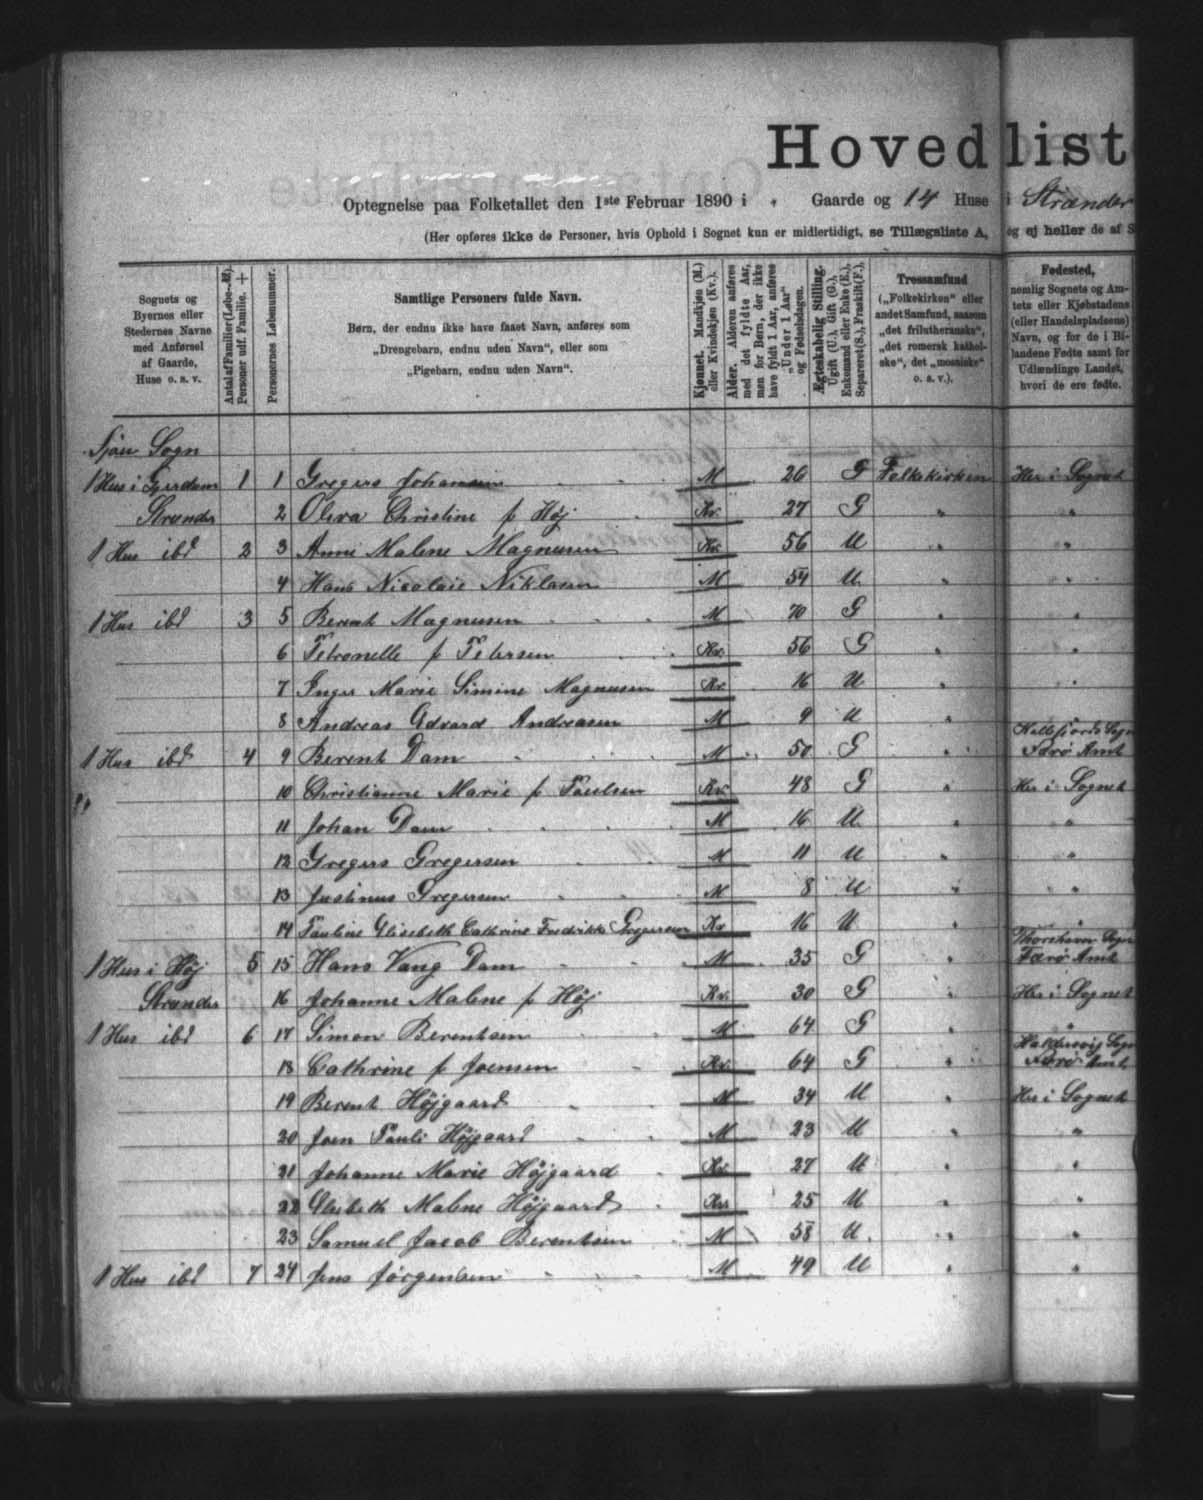 Hovedlist
Optegnelse paa Folketallet den 1ste Februar 1890 i " Gaarde og 14 Huse i Strænder
(Her opføres ikke de Personer, hvis Ophold i Sognet kun er midlertidigt, se Tillægsliste A, og ej heller de af S
Sognets og Byernes eller Stedernes Navne med Anførsel af Gaarde, Huse o. s. v.
Antal af Familier (Løbe-№). Personer udf. Familie. +
Personernes Løbenummer.
Samtlige Personers fulde Navn.
Børn, der endnu ikke have faaet Navn, anføres som
„Drengebarn, endnu uden Navn", eller som
„Pigebarn, endnu uden Navn".
Kjønnet. Mandkjøn (M.) eller Kvindekjøn (Kv.).
Alder. Alderen anføres med det fyldte Aar, men for Børn, der ikke have fyldt 1 Aar, anføres „Under 1 Aar" og Fødselsdagen.
Ægteskabelig Stilling. Ugift (U.), Gift (G.), Enkemand eller Enke (E.), Separeret (S.), Fraskilt (F.).
Trossamfund („Folkekirken" eller andet Samfund, saasom „det frilutheranske", „det romersk katholske", det „mosaiske" o. s. v.).
Fødested, nemlig Sognets og Amtets eller Kjøbstadens (eller Handelspladsens) Navn, og for de i Bilandene Fødte samt for Udlændinge Landet, hvori de ere fødte.
Sjøv Sogn
1 Hus i Gjerdum 1 1 Gregers Johansen M 26 G Folkekirken Her i Sognet
Strænder 2 Oliva Christine f Høj Kv. 27 G " "
1 Hus ibd 2 3 Anne Malene Magnusen Kv. 56 U " "
4 Hans Nicolaie Niklasen M 54 U " "
1 Hus ibd 3 5 Berent Magnusen M 70 G " "
6 Petronelle f Petersen Kv. 56 G " "
7 Inger Marie Simine Magnusen Kv. 16 U " "
8 Andreas Edvard Andreasen M 9 U " "
1 Hus ibd 4 9 Berent Dam M 50 G " Kollefjords Sogn Færø Amt
10 Christianne Marie f Poulsen Kv. 48 G " Her i Sognet
11 Johan Dam M 16 U " "
12 Gregers Gregersen M 11 U " "
13 Justinus Gregersen M 8 U " "
14 Pauline Elisebeth Cathrine Fredrikke Gregersen Kv 16 U " "
1 Hus i Høj 5 15 Hans Vang Dam M 35 G " Thorshavn Sogn Færø Amt
Strænder 16 Johanne Malene f Høj Kv. 30 G " Her i Sognet
1 Hus ibd 6 17 Simon Berentsen M 64 G " "
18 Cathrine f Joensen Kv. 64 G " Haldersvig Sogn Færø Amt
19 Berent Højgaard M 34 U " Her i Sognet
20 Joen Pauli Højgaard M 23 U " "
21 Johanne Marie Højgaard Kv. 27 U " "
22 Elsebeth Malene Højgaard Kv. 25 U " "
23 Samuel Jacob Berentsen M 58 U. " "
1 Hus ibd 7 24 Jens Jørgensen M 49 U " "